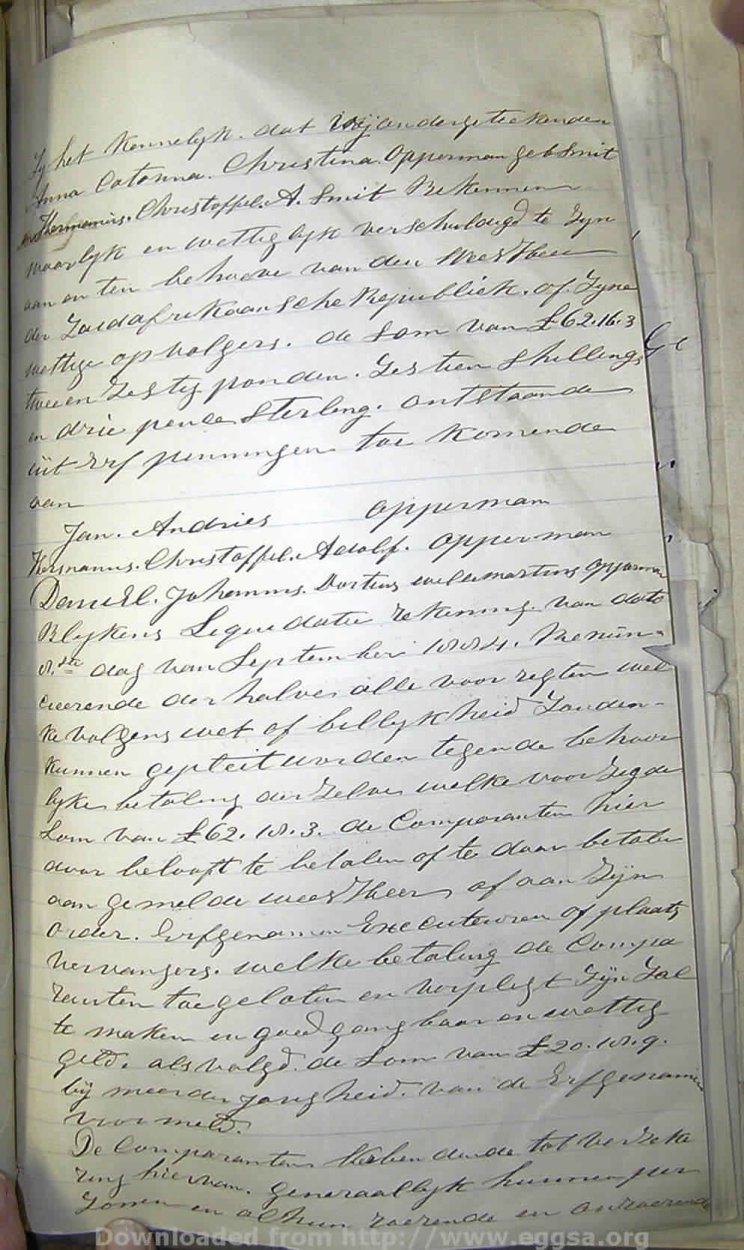 Zy het Kennelyk. dat Wij ondergeteekenden
Anna Catorina. Christina Opperman geb Smit
en Hermanus. Christoffel. A. Smit Bekennen
waarlyk en wettiglyk verschuldigd te Zyn
aan en ten behoeve van den WeesHeer
der Zuidafrikaansche Republiek. of Zyne
wettige opvolgers. de Som van £62.16.3
twee en Zestig ponden. Zestien Shellings
en drie pence Sterling. ontstaande
uit Erf penningen toe Komende
aan
Jan. Andries Opperman
Hermanus. Christoffel. Adolf. Opperman
Daniel. Johannes. Opperman
Blykens Liquidatie rekening van dato
8ste dag van September 1884. Renun-
cieerende derhalve alle voor regten wel
ke volgens wet of billykheid Zouden-
Kunnen gepleit worden tegen de behoor
lyke betaling der Zelve welke voor Zegde
Som van £62.16.3. de Comparanten hier
door belooft te betalen of te doen betalen
aan gemelde weesHeer, of aan Zijn
order. Erfgenamen Executeuren of plaats
vervangers. welke betaling de Compa
ranten toegelaten en verpligt Zijn Zal
te maken in goed gangbaar en wettig
geld. als volgd. de Som van £20.18.9.
bij meerderjarigheid. van de Erfgenamen
voormeld.
De Comparanten Hebbende tot verzeke
ring hiervan. generaallyk hunnen per
zonen en al hun roerende en onroerende
Downloaded from http://www.eggsa.org